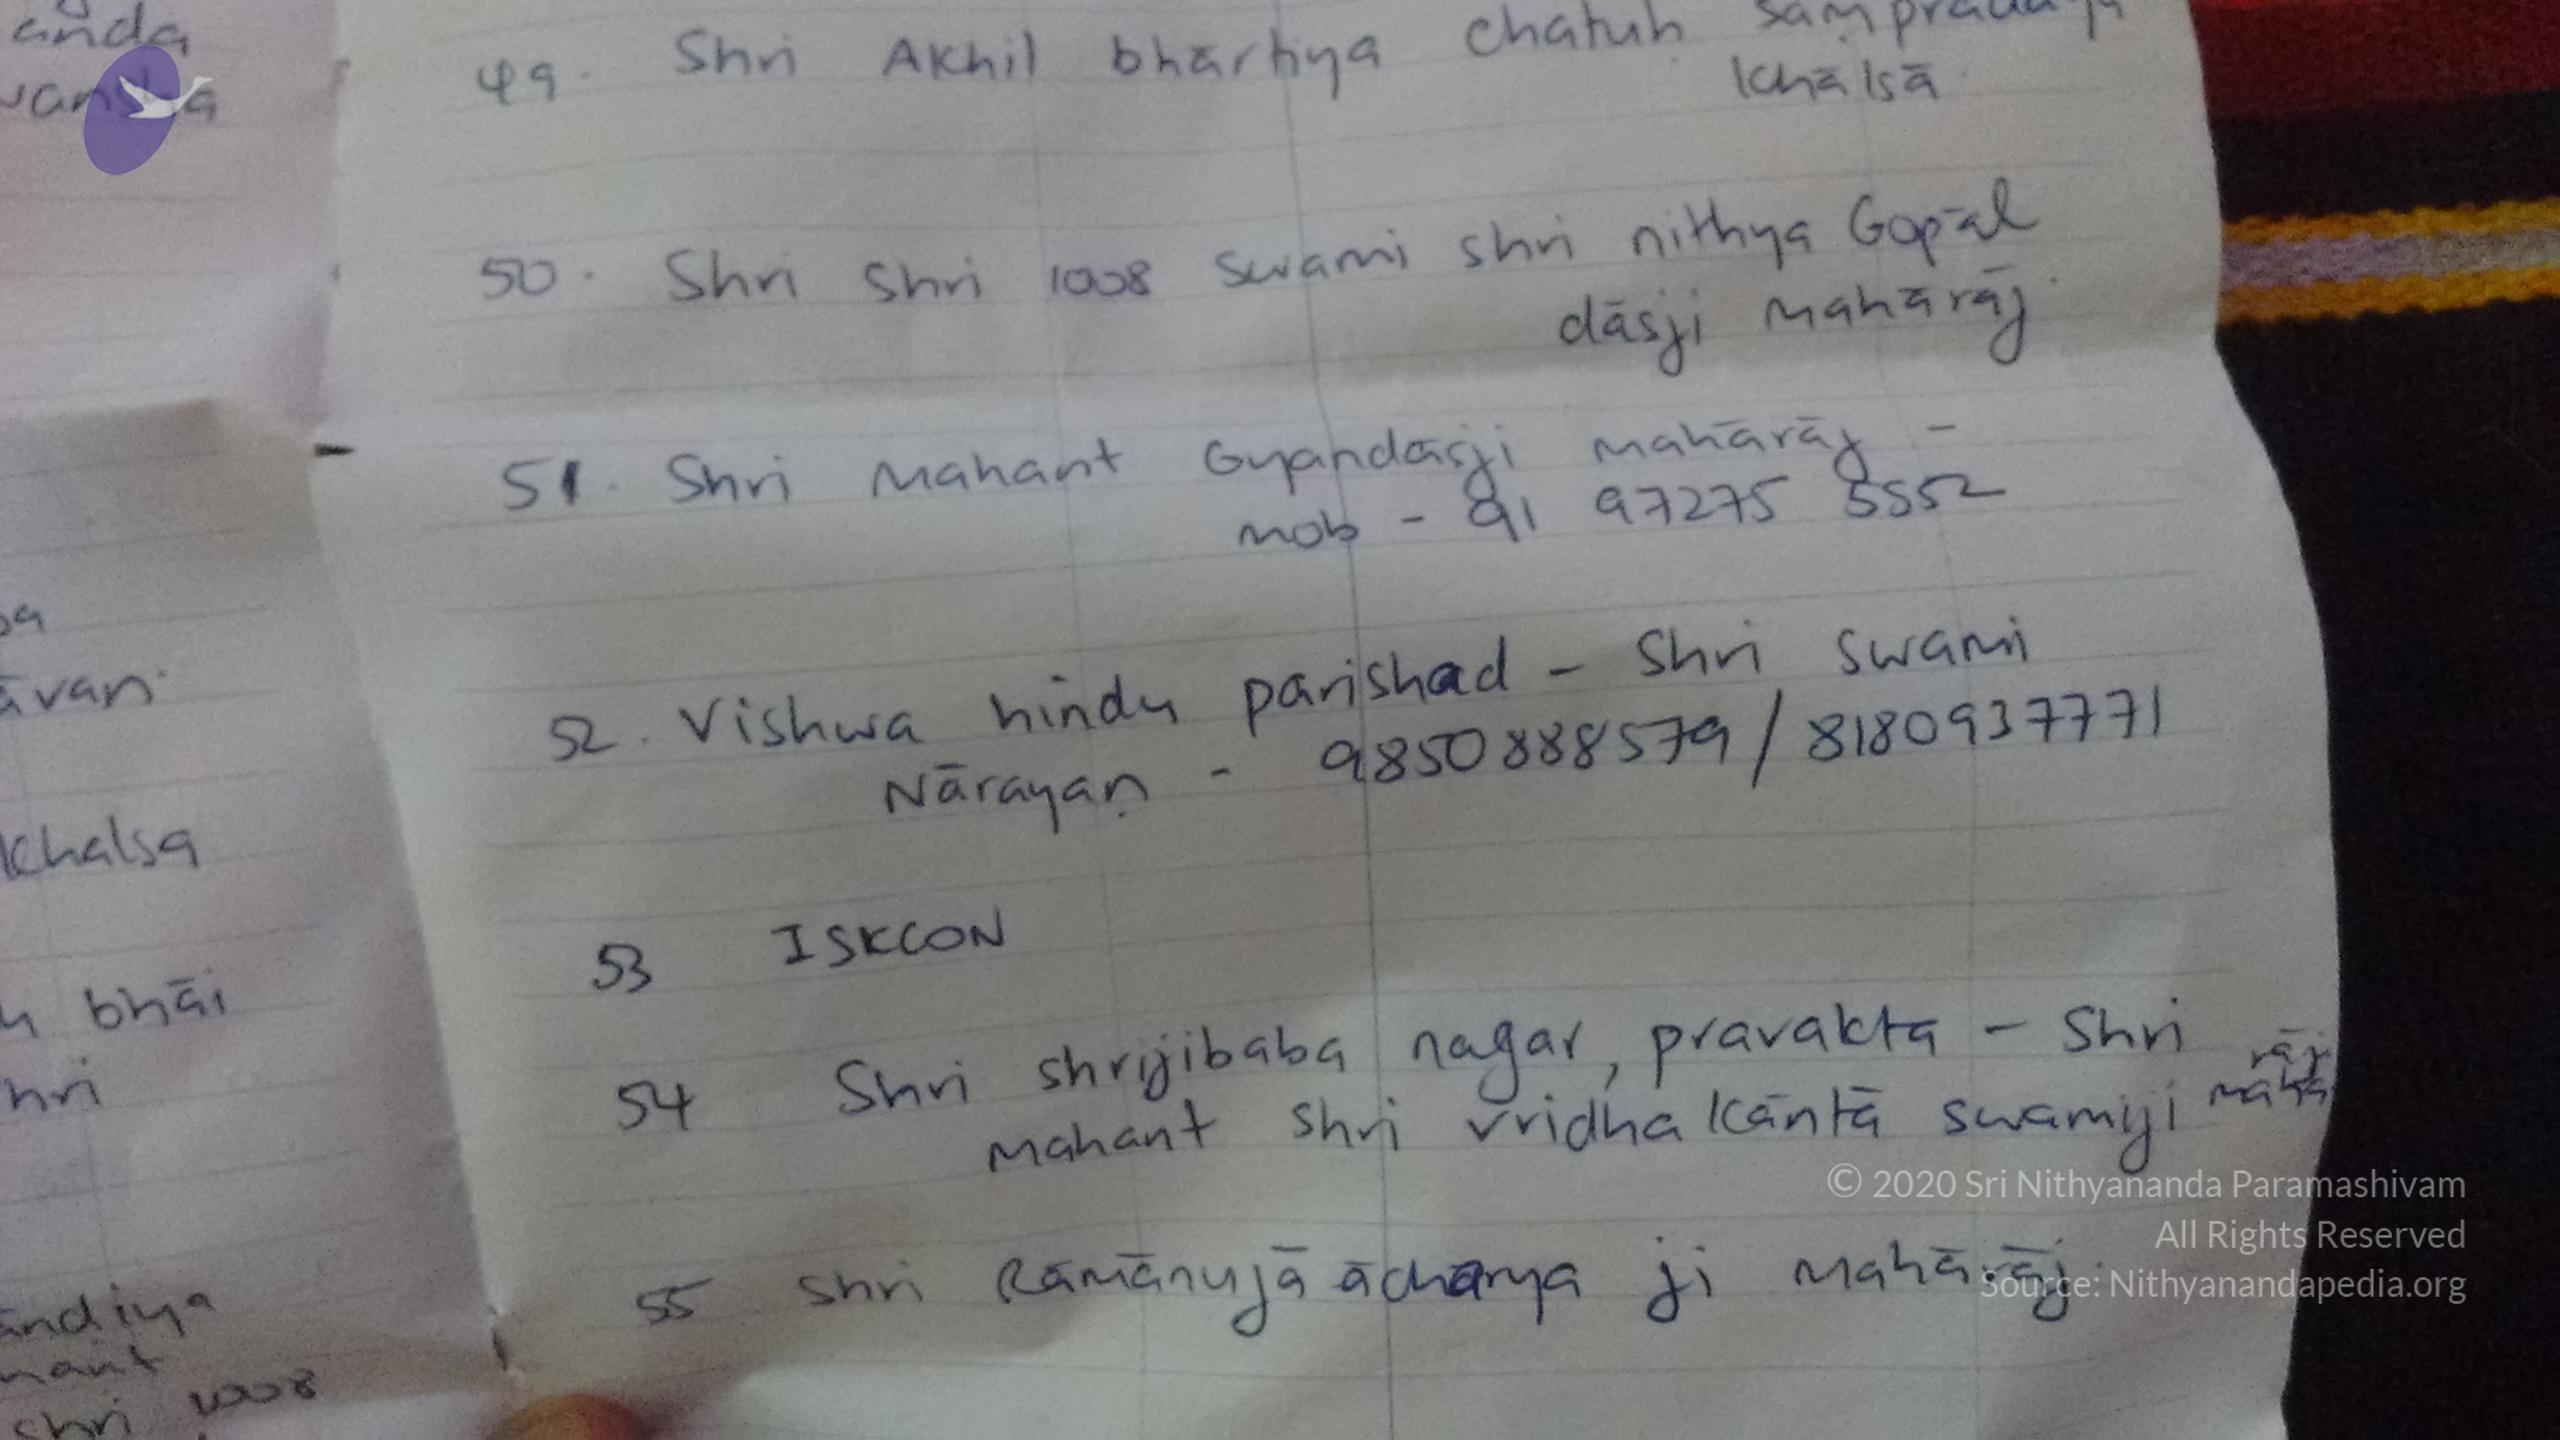 anda
49. Shri Akhil bhārtiya chatuḥ saṃpradāya
khālsā
50. Shri Shri 1008 swami shri nithya Gopāl
dāsji mahārāj.
51. Shri Mahant Gyandāsji mahārāj -
mob - 91 97275 5552
52. Vishwa hindu parishad - Shri swami
Nārayaṇ - 9850888579 / 8180937771
53 ISKCON
54 Shri shrijibaba nagar, pravakta - Shri
mahant shri vridhakāntā swamiji mahā
rāj
55 shri Rāmānujā āchārya ji mahārāj.
khalsa
bhāi
shri 1008
© 2020 Sri Nithyananda Paramashivam
All Rights Reserved
Source: Nithyanandapedia.org